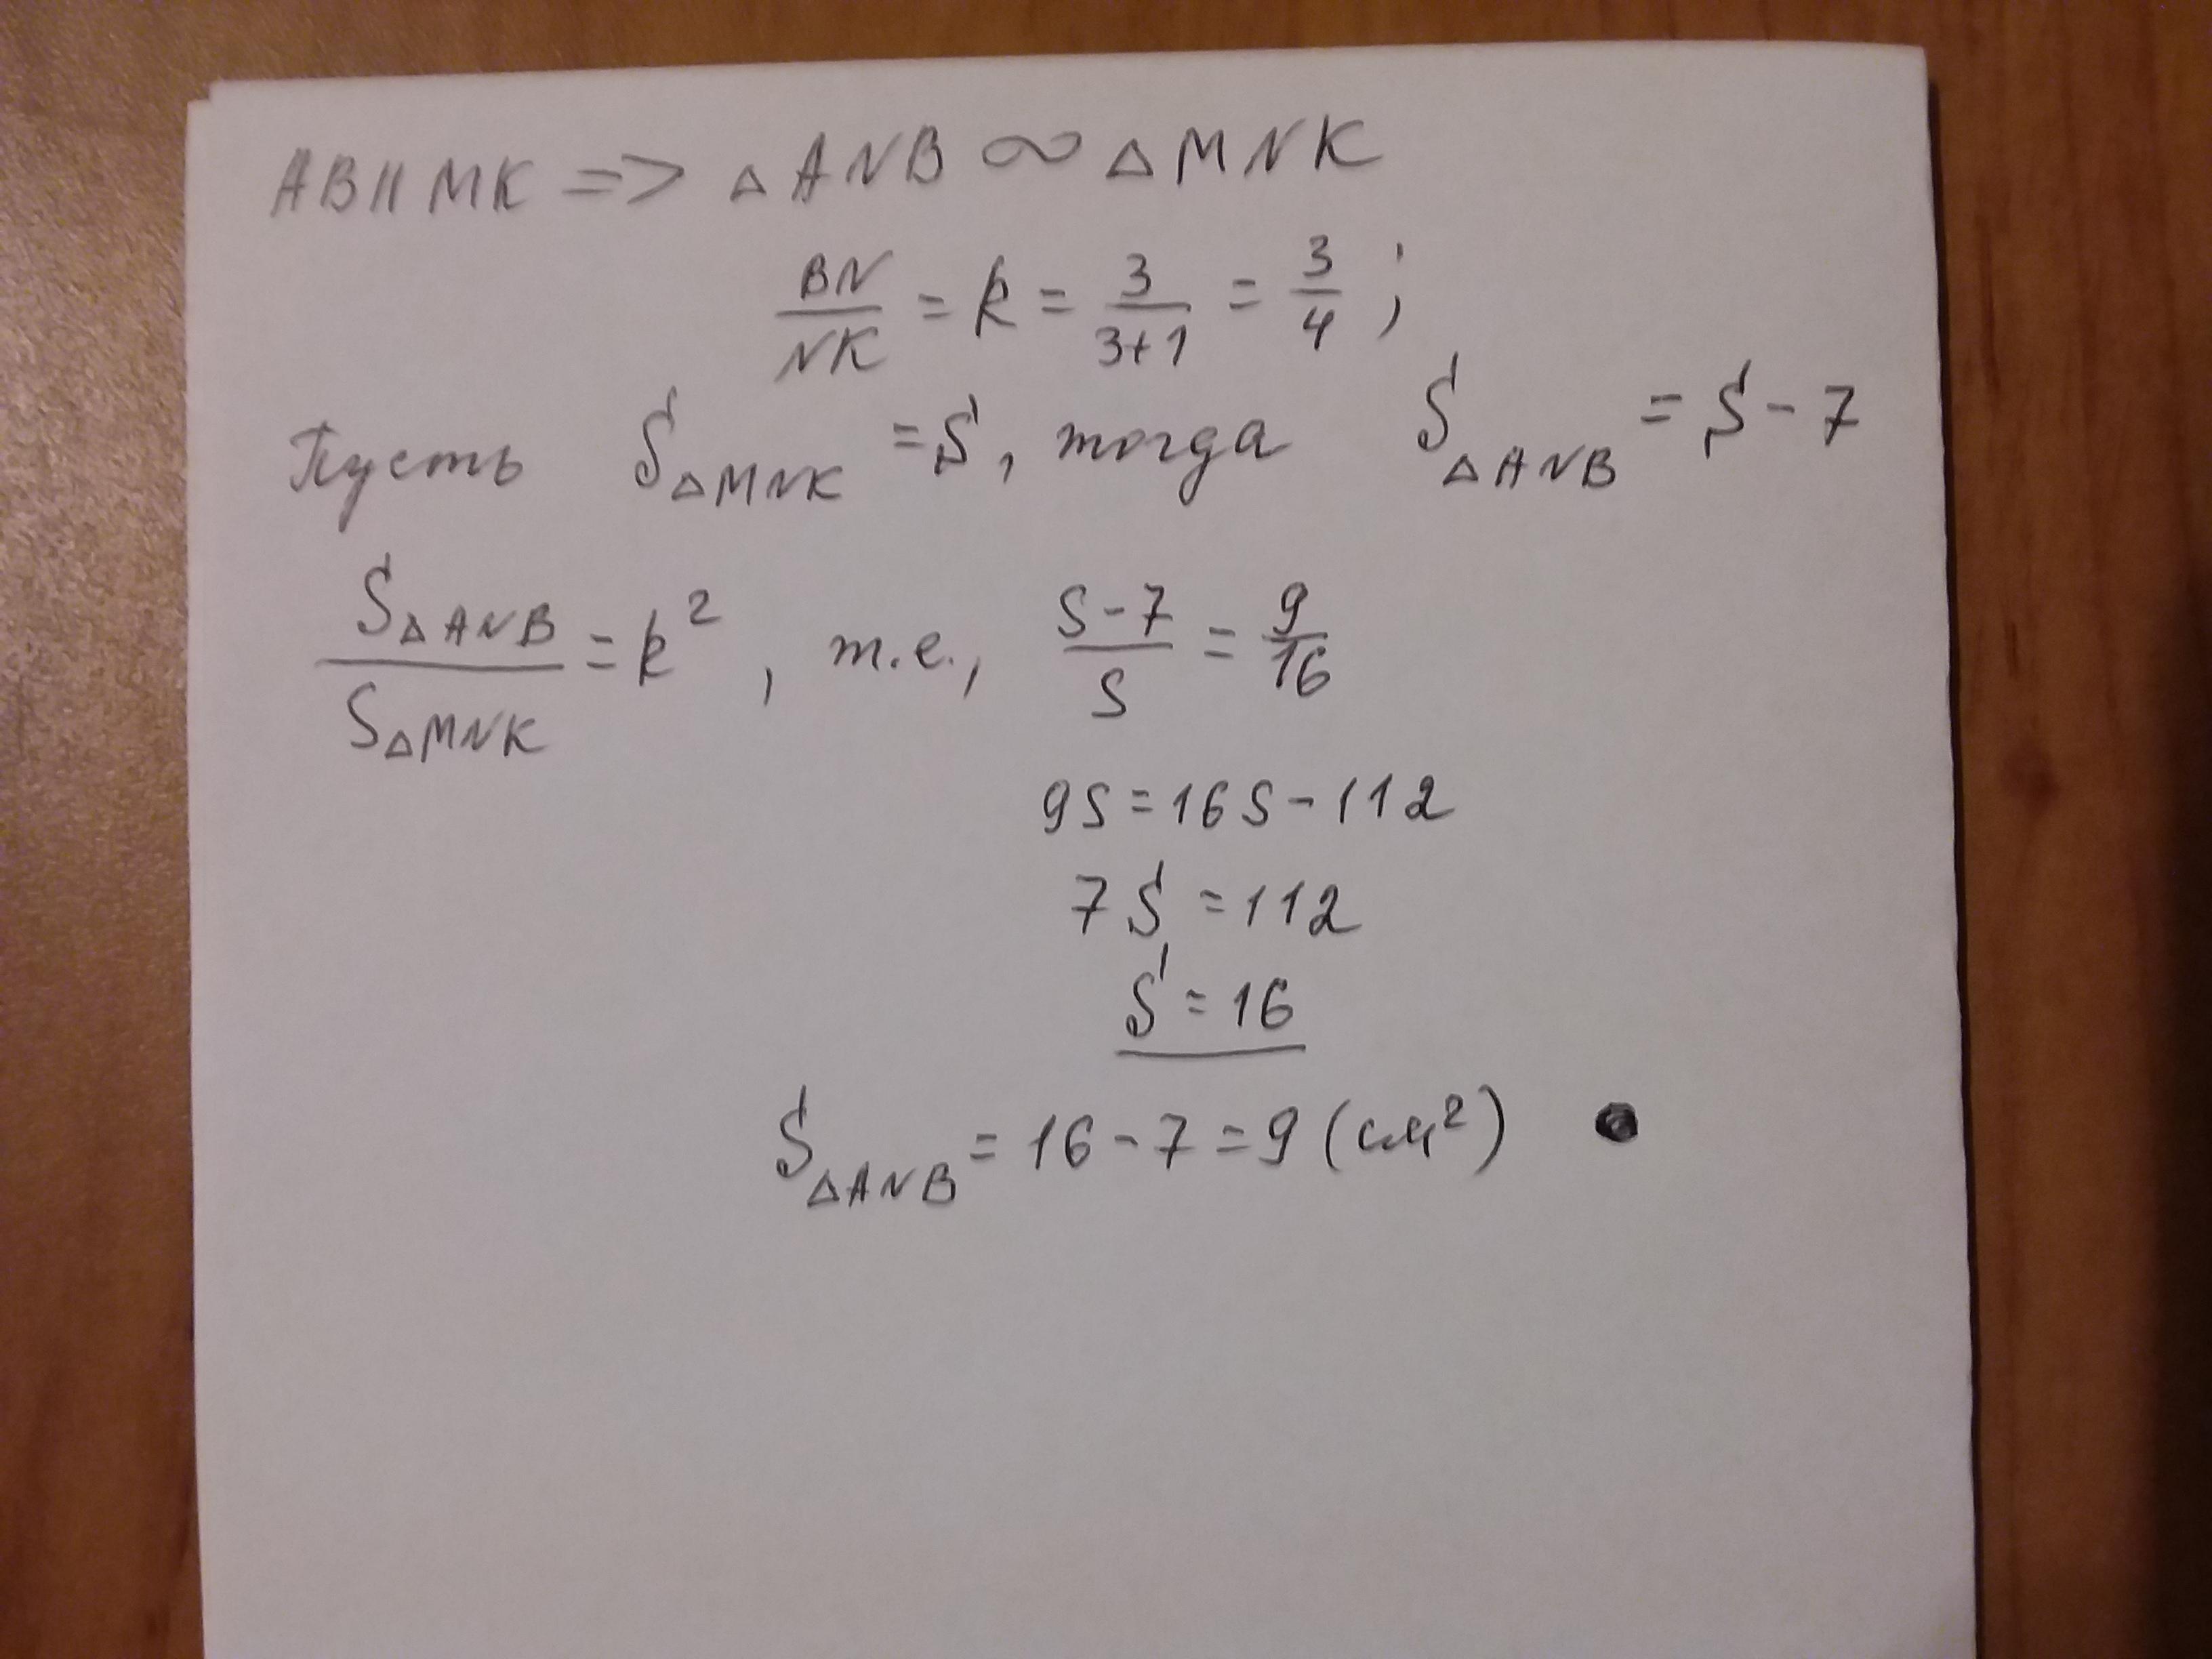 AB || MK => △ANB ∾ △MNK
BN/NK = k = 3/(3+1) = 3/4 ;
Пусть S△MNK = S, тогда S△ANB = S - 7
S△ANB/S△MNK = k², т.е., (S-7)/S = 9/16
9S = 16S - 112
7S = 112
S = 16
S△ANB = 16 - 7 = 9 (см²)